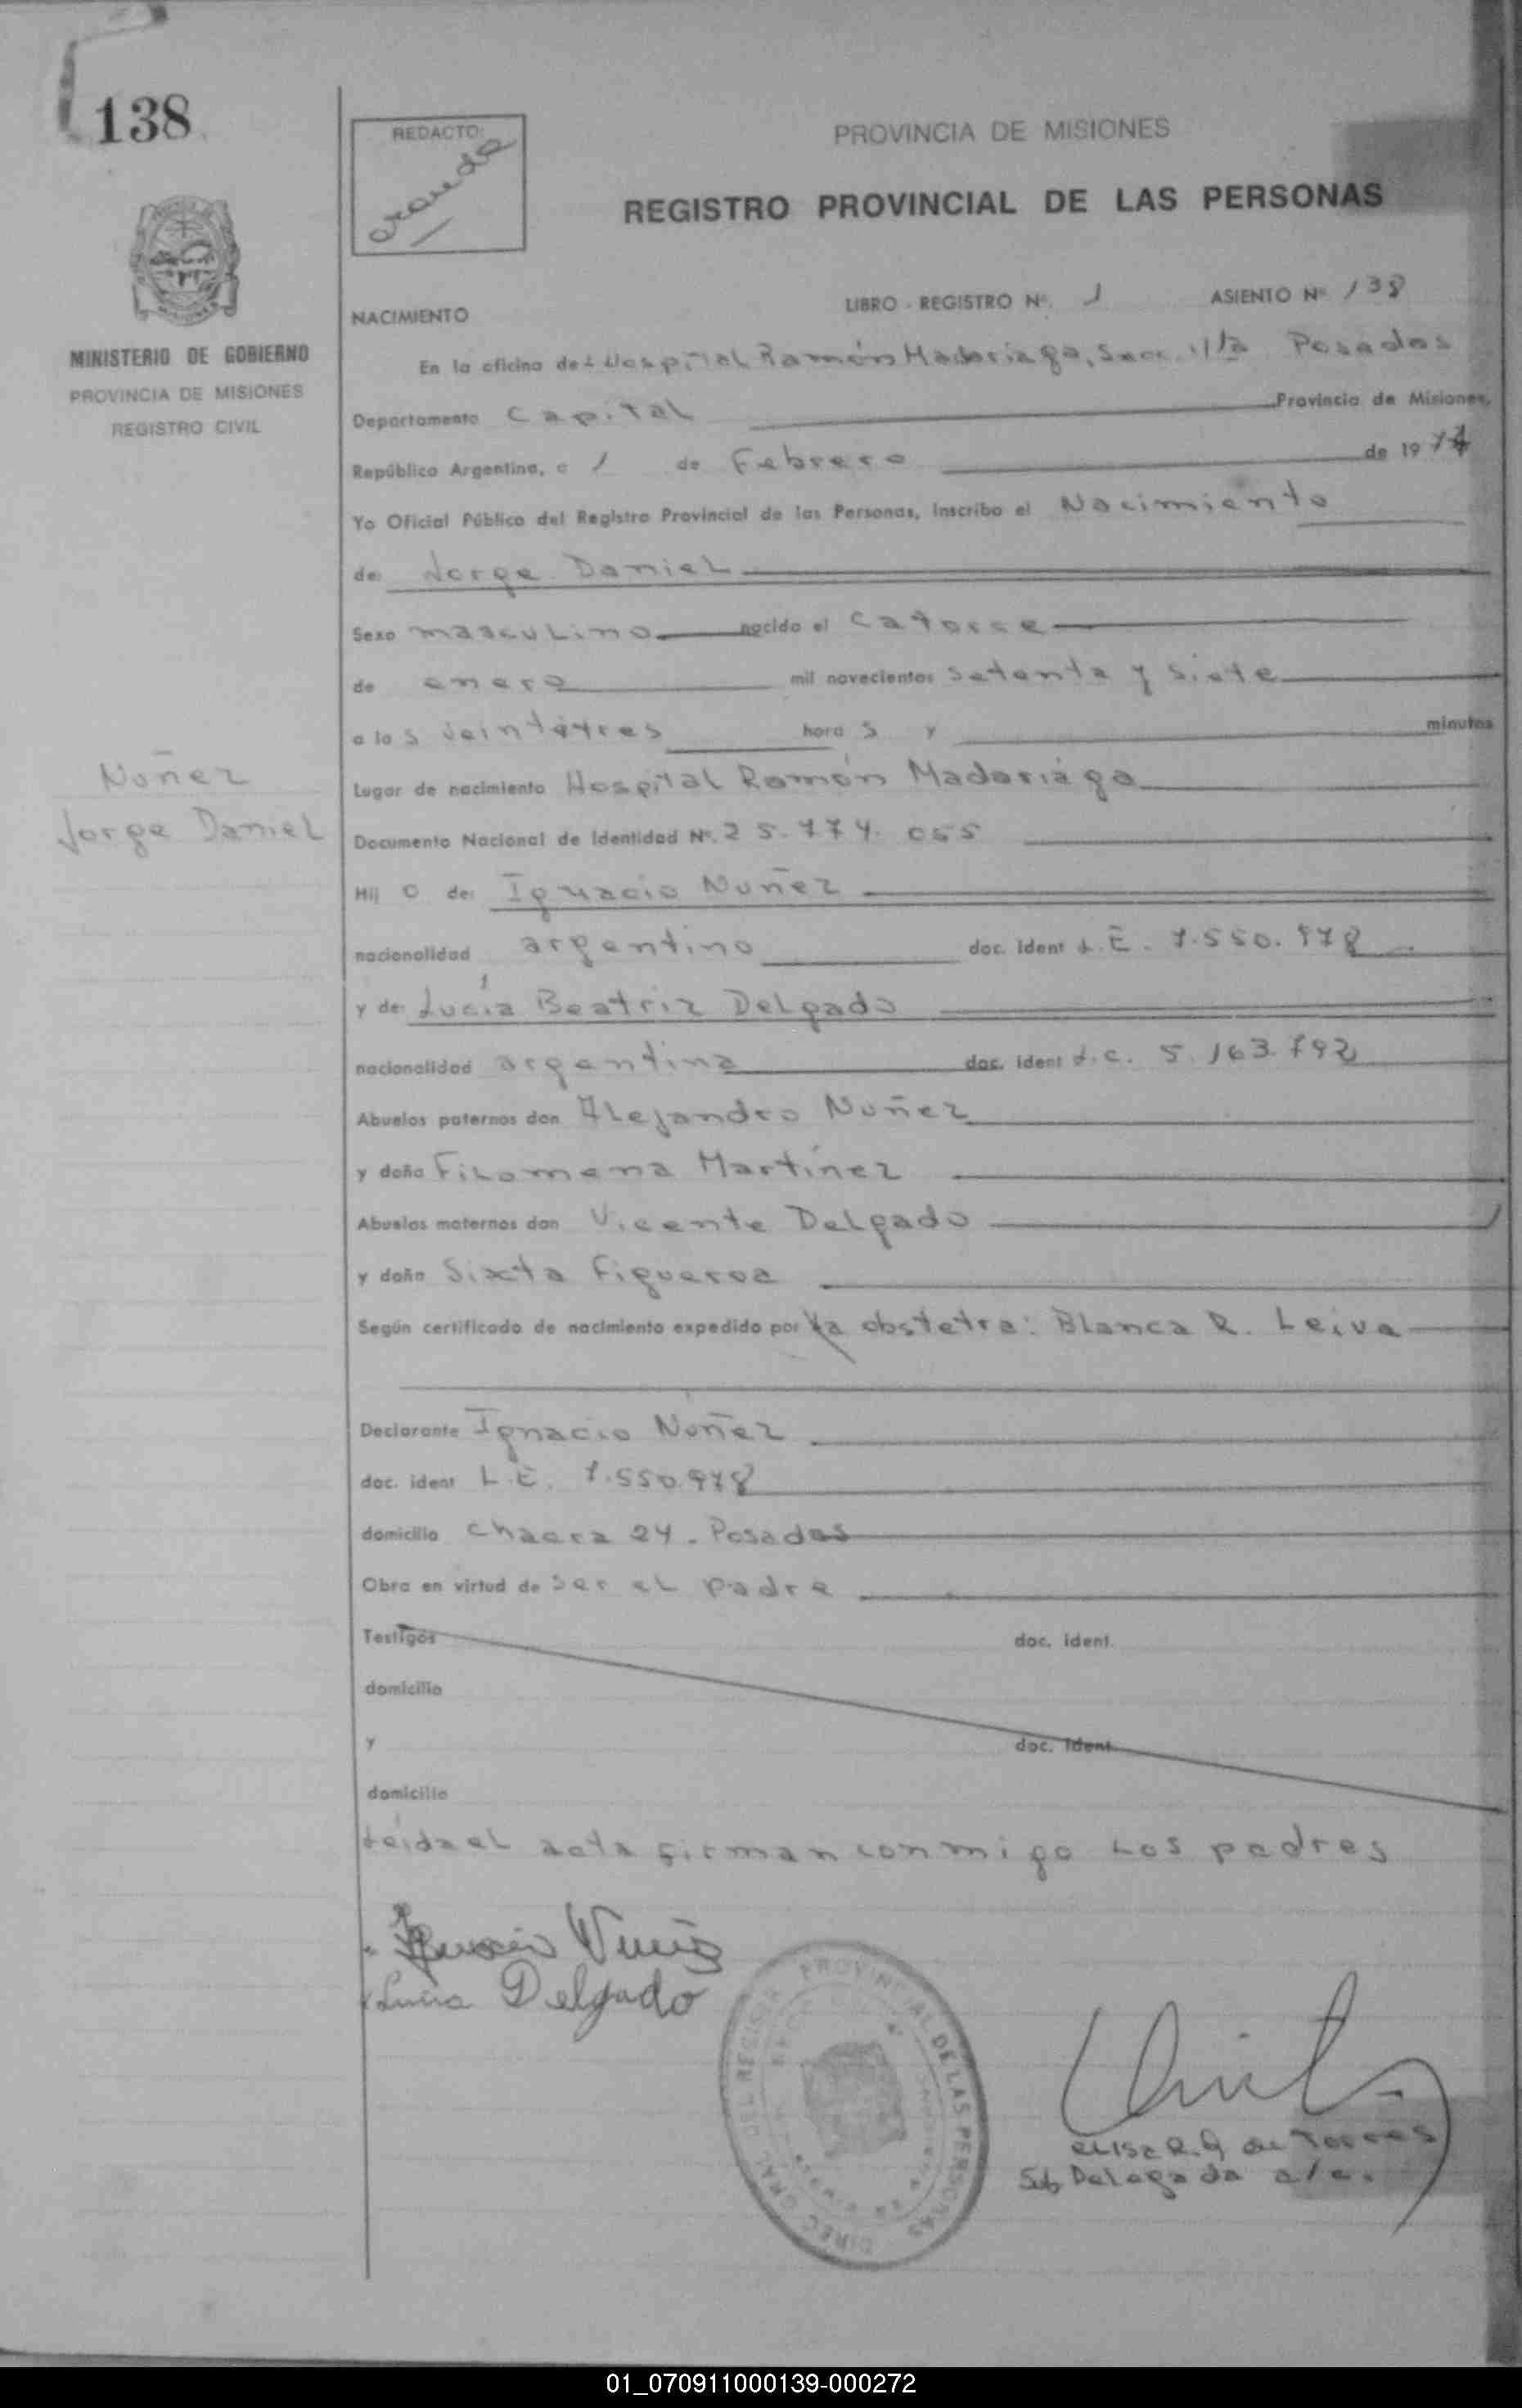 138
REDACTO:
PROVINCIA DE MISIONES
REGISTRO PROVINCIAL DE LAS PERSONAS
MINISTERIO DE GOBIERNO
PROVINCIA DE MISIONES
REGISTRO CIVIL
NACIMIENTO
LIBRO - REGISTRO Nº. 1 ASIENTO Nº 138
En la oficina del Hospital Ramón Madariaga, Secc. 11ª Posadas
Departamento Capital Provincia de Misiones,
República Argentina, a 1 de Febrero de 1977
Yo Oficial Público del Registro Provincial de las Personas, inscribo el Nacimiento
de: Jorge Daniel
Sexo masculino nacido el Catorce
de enero mil novecientos setenta y siete
a las veintitres horas y minutos
Nuñez
Jorge Daniel
Lugar de nacimiento Hospital Ramón Madariaga
Documento Nacional de Identidad Nº. 25.774.055
Hijo de: Ignacio Nuñez
nacionalidad argentino doc. ident L.E. 7.550.978
y de: Lucía Beatriz Delgado
nacionalidad argentina doc. ident L.C. 5.163.792
Abuelos paternos don Alejandro Nuñez
y doña Filomena Martínez
Abuelos maternos don Vicente Delgado
y doña Sixta Figueroa
Según certificado de nacimiento expedido por la obstetra: Blanca R. Leiva
Declarante Ignacio Nuñez
doc. ident L.E. 7.550.978
domicilio Chacra 24. Posadas
Obra en virtud de ser el padre
Testigos doc. ident.
domicilio
y doc. ident.
domicilio
Leída el acta firman conmigo Los padres
Ignacio Nuñez
Lucia Delgado
DIREC. GRAL. DEL REGISTR. PROVINCIAL DE LAS PERSONAS
Elisa R. G de Torres
Sub Delegada a/c.
01_070911000139-000272